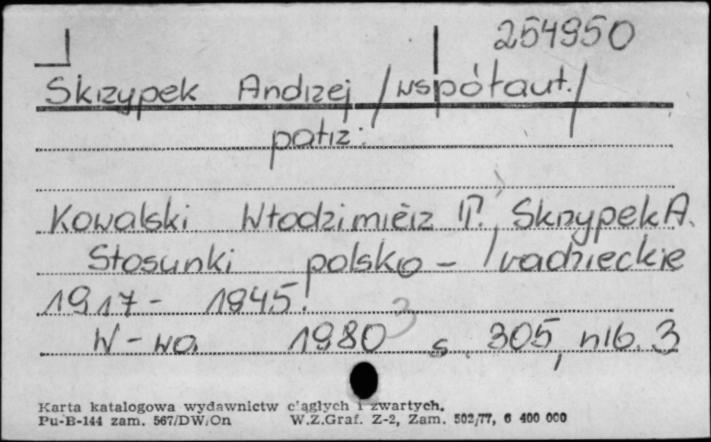 254950
Skrzypek Andrzej /współaut./
patrz:
Kowalski Włodzimierz T., Skrzypek A.
Stosunki polsko - radzieckie
1917 - 1945.
W-wa 1980 s. 305, nlb. 3
Karta katalogowa wydawnictw ciągłych i zwartych.
Pu-B-144 zam. 567/DW/On W.Z.Graf. Z-2, Zam. 502/77, 6 400 000